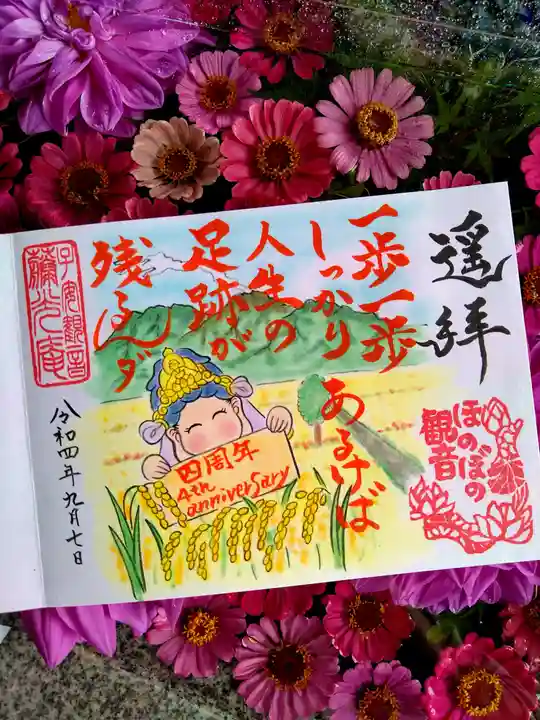 遥拝
ほのぼの
観音
一歩一歩
しっかり
あるけば
人生の
足跡が
残るダ
四周年
4th
anniversary
子安観音
令和四年九月七日